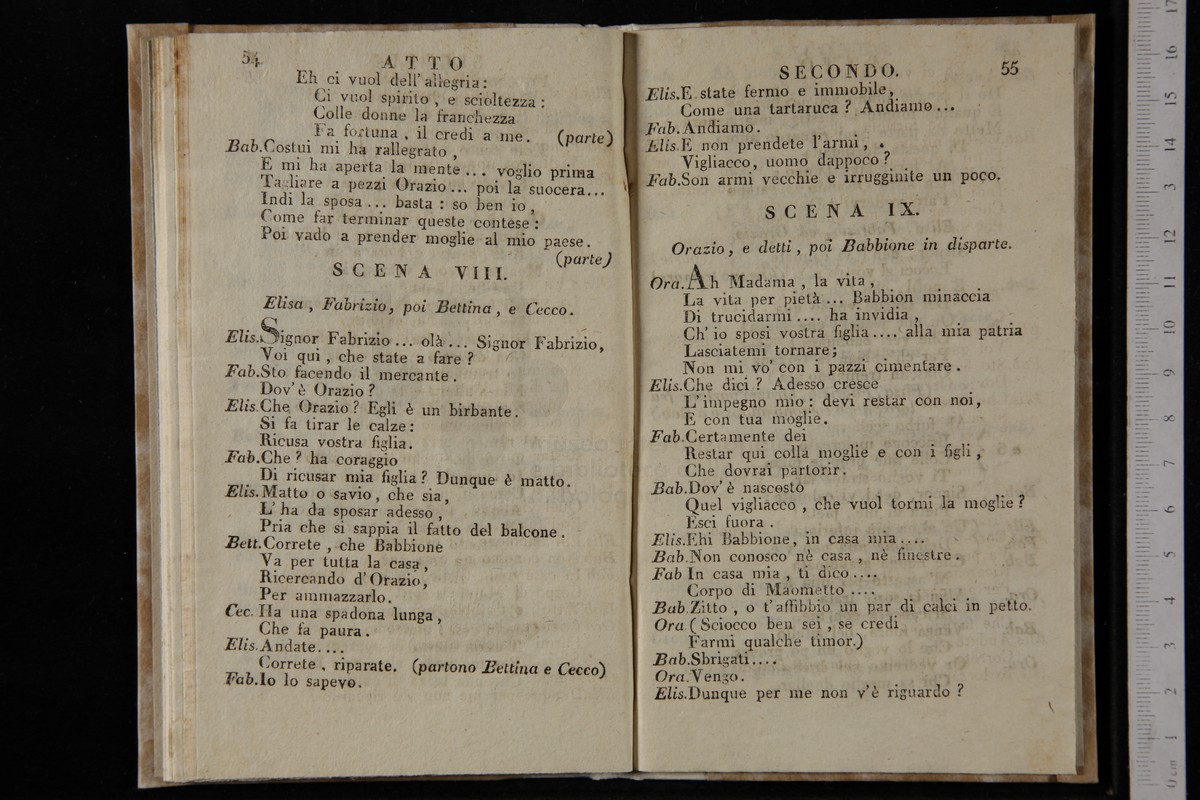 54
ATTO
Eh ci vuol dell' allegria:
Ci vuol spirito, e scioltezza:
Colle donne la franchezza
Fa fortuna, il credi a me. (parte)
Bab.Costui mi ha rallegrato,
E mi ha aperta la mente... voglio prima
Tagliare a pezzi Orazio... poi la suocera...
Indi la sposa... basta: so ben io,
Come far terminar queste contese:
Poi vado a prender moglie al mio paese.
(parte)
SCENA VIII.
Elisa, Fabrizio, poi Bettina, e Cecco.
Elis.Signor Fabrizio... olà... Signor Fabrizio,
Voi qui, che state a fare?
Fab.Sto facendo il mercante.
Dov' è Orazio?
Elis.Che Orazio? Egli è un birbante.
Si fa tirar le calze:
Ricusa vostra figlia.
Fab.Che? ha coraggio
Di ricusar mia figlia? Dunque è matto.
Elis.Matto o savio, che sia,
L' ha da sposar adesso,
Pria che si sappia il fatto del balcone.
Bett.Correte, che Babbione
Va per tutta la casa,
Ricercando d'Orazio,
Per ammazzarlo.
Cec.Ha una spadona lunga,
Che fa paura.
Elis.Andate....
Correte, riparate. (partono Bettina e Cecco)
Fab.Io lo sapevo.
SECONDO.
55
Elis.E state fermo e immobile,
Come una tartaruca? Andiamo...
Fab.Andiamo.
Elis.E non prendete l'armi,
Vigliacco, uomo dappoco?
Fab.Son armi vecchie e irrugginite un poco.
SCENA IX.
Orazio, e detti, poi Babbione in disparte.
Ora.Ah Madama, la vita,
La vita per pietà... Babbion minaccia
Di trucidarmi.... ha invidia,
Ch' io sposi vostra figlia.... alla mia patria
Lasciatemi tornare;
Non mi vo' con i pazzi cimentare.
Elis.Che dici? Adesso cresce
L'impegno mio: devi restar con noi,
E con tua moglie.
Fab.Certamente dei
Restar qui colla moglie e con i figli,
Che dovrai partorir.
Bab.Dov' è nascosto
Quel vigliacco, che vuol tormi la moglie?
Esci fuora.
Elis.Ehi Babbione, in casa mia....
Bab.Non conosco nè casa, nè finestre.
Fab In casa mia, ti dico....
Corpo di Maometto....
Bab.Zitto, o t'affibbio un par di calci in petto.
Ora (Sciocco ben sei, se credi
Farmi qualche timor.)
Bab.Sbrigati....
Ora.Vengo.
Elis.Dunque per me non v'è riguardo?